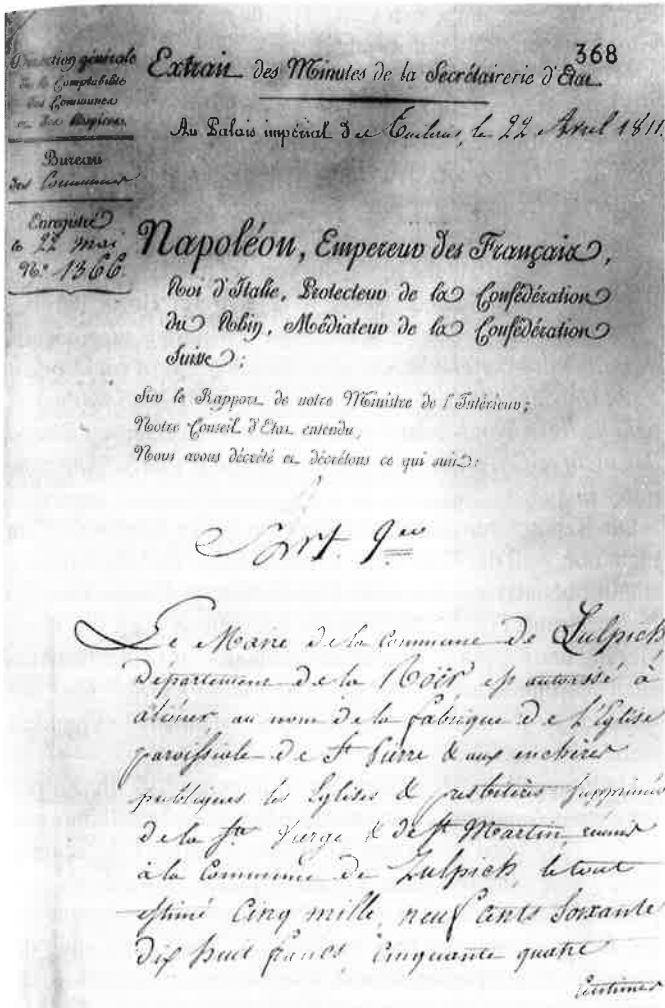 368
Direction générale
de la Comptabilité
des Communes
et des Hospices.
Bureau
des Communes
Enregistré
le 22 mai
N.º 1366.
Extrait des Minutes de la Secrétairerie d'État
Au Palais impérial des Tuileries, le 22 Avril 1811.
Napoléon, Empereur des Français,
Roi d'Italie, Protecteur de la Confédération
du Rhin, Médiateur de la Confédération
Suisse;
Sur le Rapport de notre Ministre de l'Intérieur;
Notre Conseil d'État entendu,
Nous avons décrété et décrétons ce qui suit:
Art. 1er
Le Maire de la Commune de Zulpich
departement de la Roër est autorisé à
aliéner, au nom de la fabrique de l'Eglise
paroissiale de St Pierre & aux enchères
publiques les Eglises & presbitères supprimés
de la Ste Vierge & de St Martin, réunis
à la Commune de Zulpich, le tout
estimé Cinq mille, neuf Cents Soixante
dix huit francs Cinquante quatre
Centimes